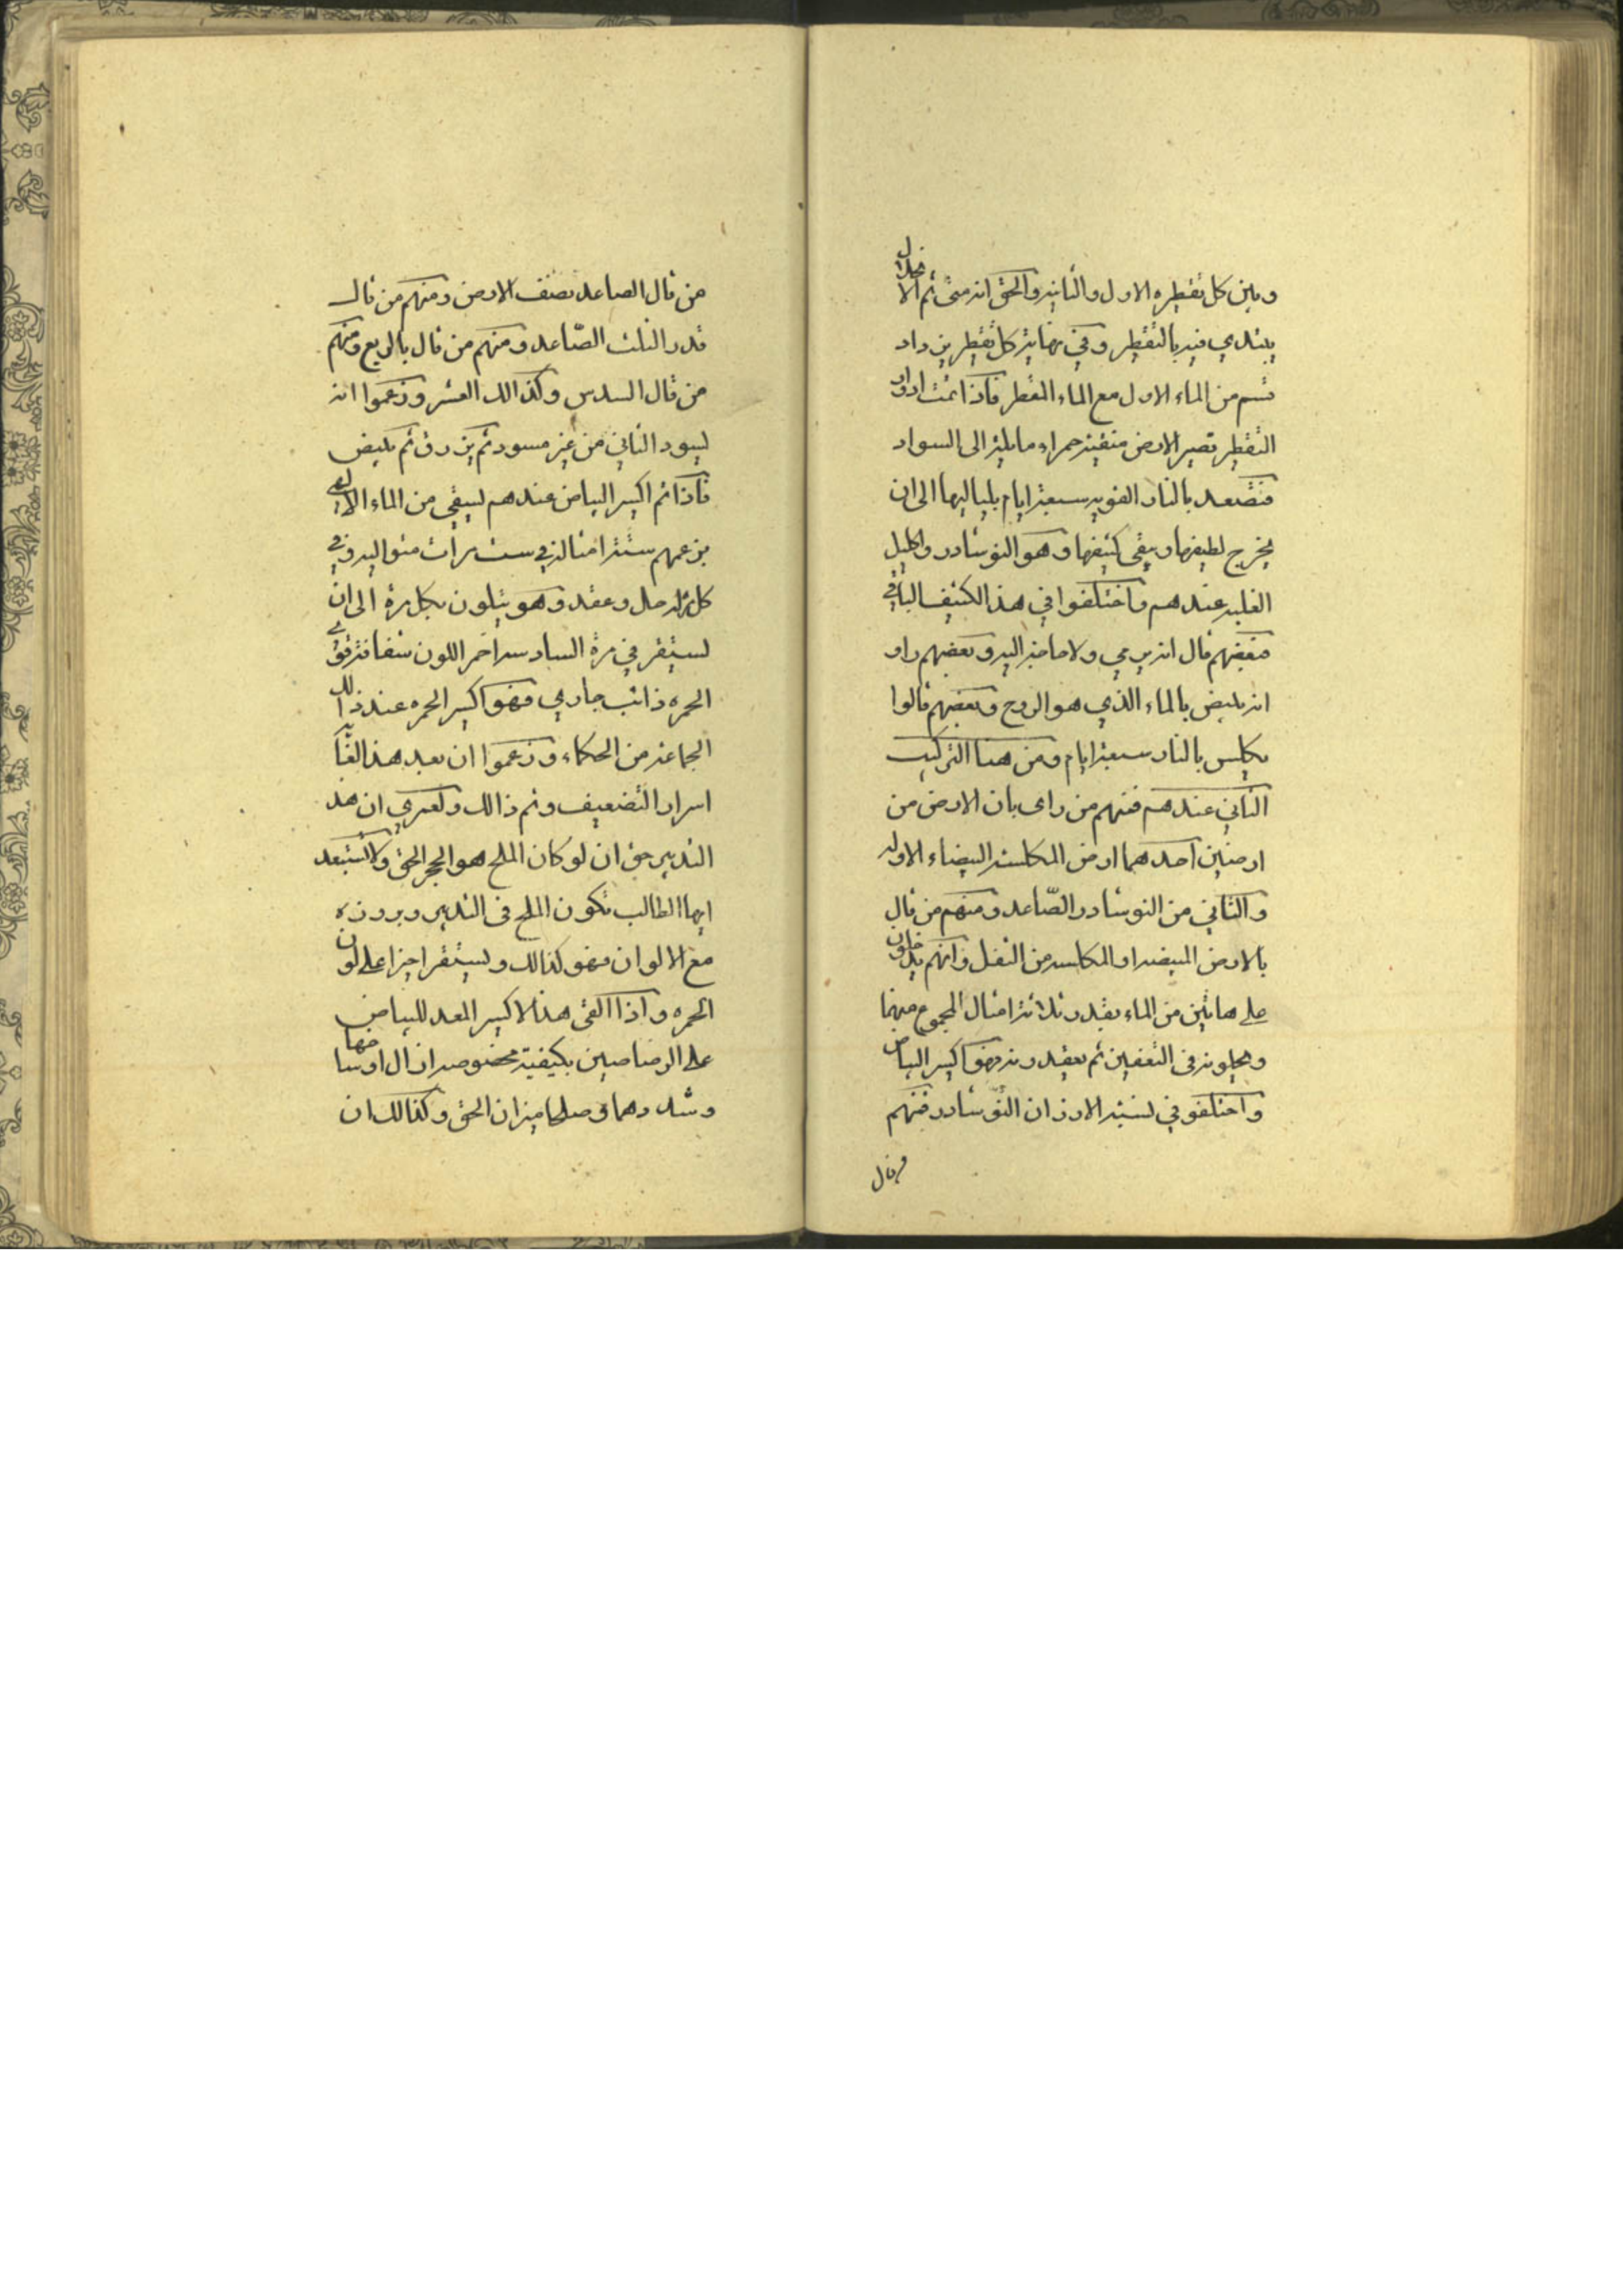 وبين كل تقطيره الاول والثانيه والحق انه متى تم الانحلال
يبتدي فيه بالتقطير وفي نهاية كل تقطير يزداد
قسم من الماء الاول مع الماء المقطر فاذا تمت ادوار
التقطير تصير الارض منقية حمراء مايلة الى السواد
فتصعد بالنار القويه سبعة ايام بلياليها الى ان
يخرج لطيفها ويبقى كثيفها وهو النوشادر واكليل
الغلبه عندهم واختلفوا في هذا الكثيف الباقي
فبعضهم قال انه يرمي ولا حاجة اليه وبعضهم راو
انه يبيض بالماء الذي هو الروح وبعضهم قالوا
يكلس بالنار سبعة ايام ومن هنا التركيب
الثاني عندهم فمنهم من راى بان الارض من
ارضين احدهما ارض المكلسة البيضاء الاوله
والثاني من النوشادر الصّاعد ومنهم من قال
بالارض المبيضه او المكلسه من الثفل وانهم يدخلون
على هاتين من الماء بقدر ثلاثة امثال المجموع منهما
ويحلونه في التعفين ثم يعقدونه فهو اكسير البياض
واختلفو في نسبة الاوزان النوشادر فمنهم
من قال
من قال الصاعد نصف الارض ومنهم من قال
قدر الثلث الصّاعد ومنهم من قال بالربع ومنهم
من قال السدس وكذالك العشر وزعموا انه
يسود الثاني من غير مسود ثم يزرق ثم يبيض
فاذا تم اكسير البياض عندهم يسقى من الماء الالهي
بزعمهم ستة امثاله في ست مرات متواليه وفي
كل مرة حل وعقد وهو يتلون بكل مرة الى ان
يستقر في مرة السادسه احمر اللون شفاف نقي
الحمره ذائب جاري فهو اكسير الحمره عند ذالك
الجماعة من الحكماء وزعموا ان بعد هذا الغاية
اسرار التضعيف وتم ذالك ولعمري ان هد
التدبير حق ان لو كان الملح هو الحجر الحق ولا تستبعد
ايها الطالب تكون الملح في التدبير وبروزه
مع الالوان فهو كذالك ويستقر اخيرا على لون
الحمره واذا القى هذا الاكسير المعد للبياض
على الرصاصين بكيفيّة مخصوصه ازال اوساخها
وشددهما وصلحا ميزان الحق وكذالك ان